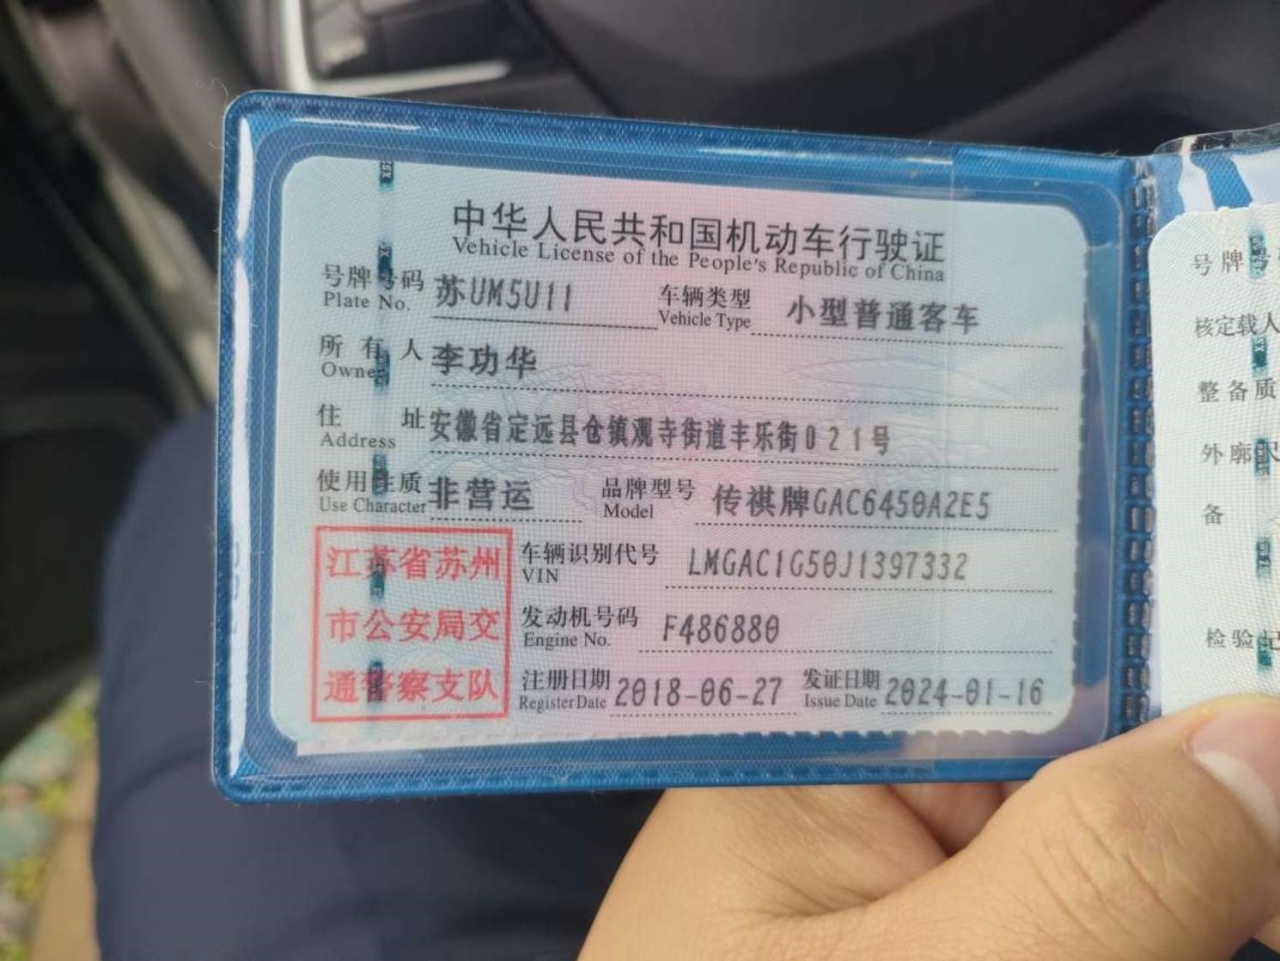 中华人民共和国机动车行驶证
Vehicle License of the People's Republic of China
号牌号码 苏UM5U11 车辆类型 小型普通客车
Plate No. Vehicle Type
所有人 李功华
Owner
住址 安徽省定远县仓镇观寺街道丰乐街021号
Address
使用性质 非营运 品牌型号 传祺牌GAC6450A2E5
Use Character Model
江苏省苏州
市公安局交
通警察支队
车辆识别代号 LMGAC1G50J1397332
VIN
发动机号码 F486880
Engine No.
注册日期 2018-06-27 发证日期 2024-01-16
Register Date Issue Date
号牌号
核定载人
整备质
外廓
备
检验记